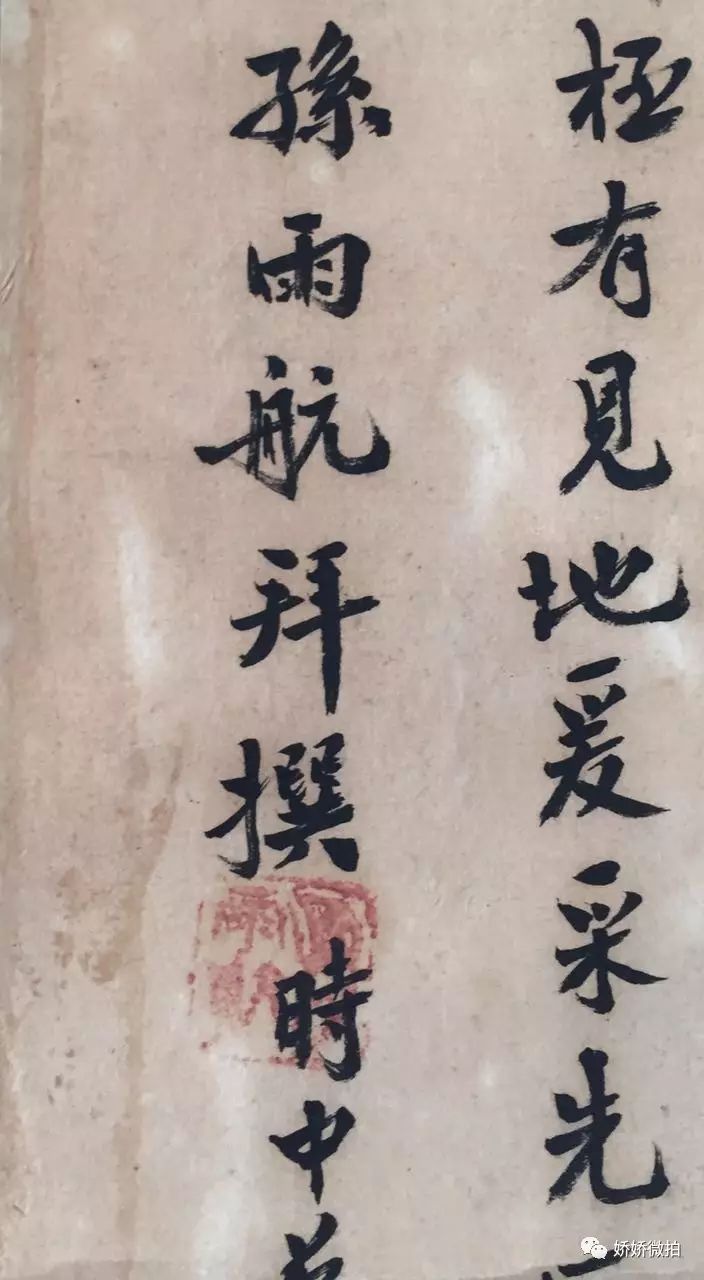 極有見地爰采先
孫雨航拜撰 時中
娇娇微拍